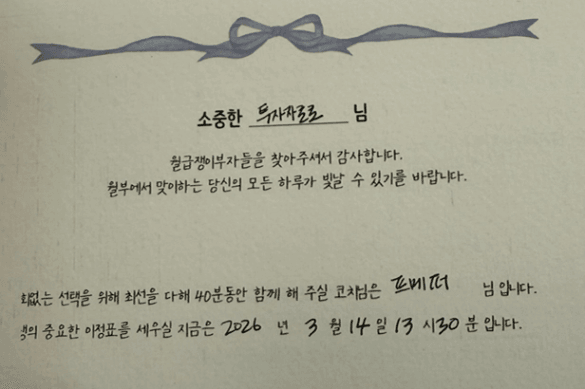 소중한 투자자로로 님
월급쟁이부자들을 찾아주셔서 감사합니다.
월부에서 맞이하는 당신의 모든 하루가 빛날 수 있기를 바랍니다.
회없는 선택을 위해 최선을 다해 40분동안 함께 해 주실 코치님은 프메퍼 님 입니다.
의 중요한 이정표를 세우실 지금은 2026 년 3 월 14 일 13 시 30 분 입니다.